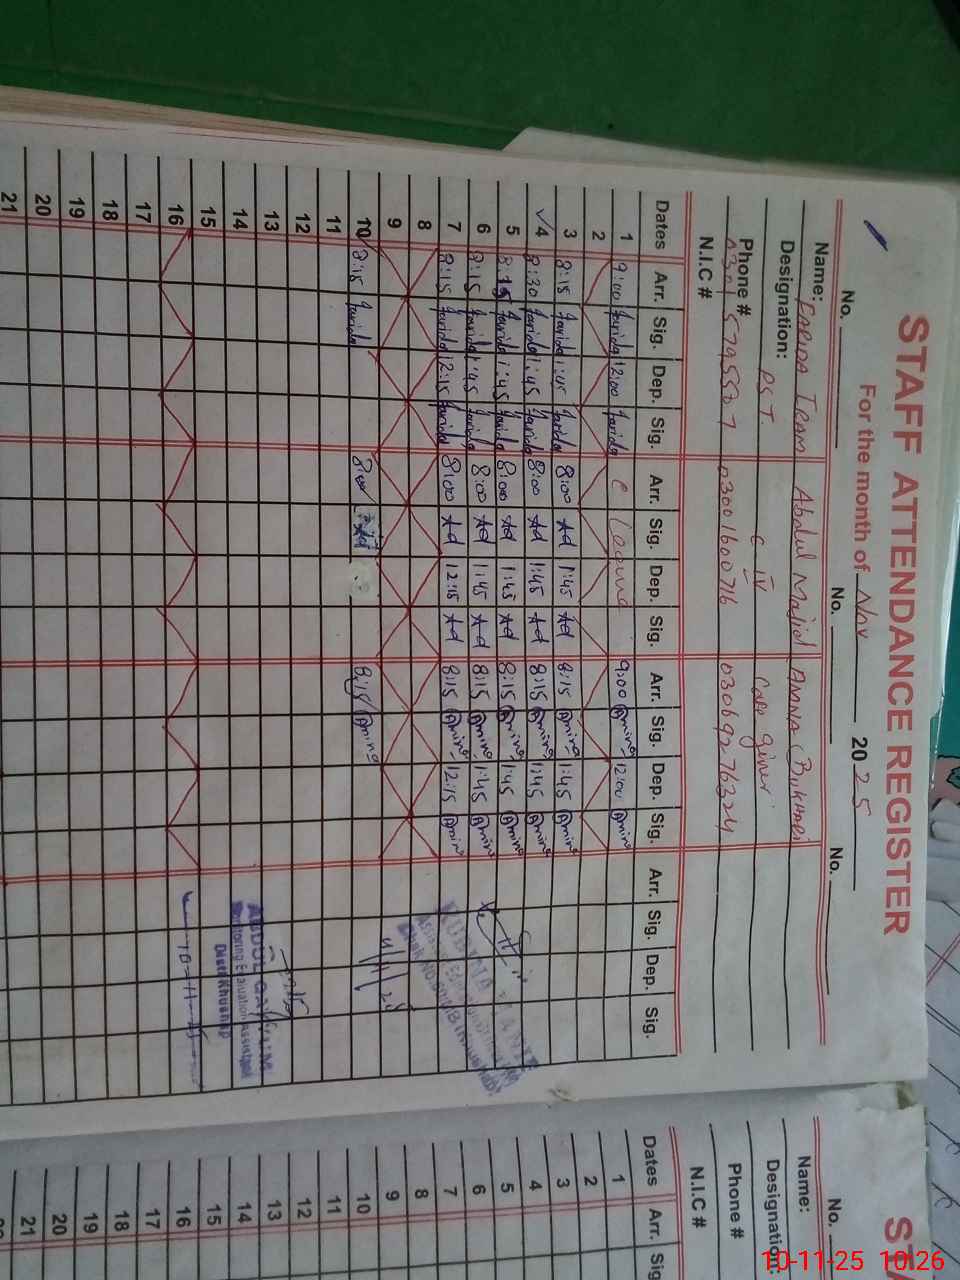 STAFF ATTENDANCE REGISTER
For the month of Nov 2025
No. No. No.
Name: FARIDA IRAM Abdul Majid AMNA BUKHARI
Designation: PST. C IV Care giver
Phone # 03001600716 03069276324
N.I.C #
Dates Arr. Sig. Dep. Sig. Arr. Sig. Dep. Sig. Arr. Sig. Dep. Sig. Arr. Sig. Dep. Sig.
1 9:00 farida 12:00 farida C Leave 9:00 Amina 12:00 Amina
2
3 8:15 farida 1:45 farida 8:00 Ad 1:45 Ad 8:15 Amina 1:45 Amina
4 8:30 farida 1:45 farida 8:00 Ad 1:45 Ad 8:15 Amina 1:45 Amina
5 8:15 farida 1:45 farida 8:00 Ad 1:45 Ad 8:15 Amina 1:45 Amina
6 8:15 farida 1:45 farida 8:00 Ad 1:45 Ad 8:15 Amina 1:45 Amina
7 8:15 farida 12:15 farida 8:00 Ad 12:15 Ad 8:15 Amina 12:15 Amina
8
9
10 8:15 farida 8:00 Ad 8:15 Amina
11
12
13
14
15
16
17
18
19
20
21
RUBINA
ABDUL QAYYUM
Monitoring Evaluation Assistant
Distt Khushab
10-11-25
No.
Name:
Designation:
Phone #
N.I.C #
Dates Arr.
1
2
3
4
5
6
7
8
9
10
11
12
13
14
15
16
17
18
19
20
21
10-11-25 10:26